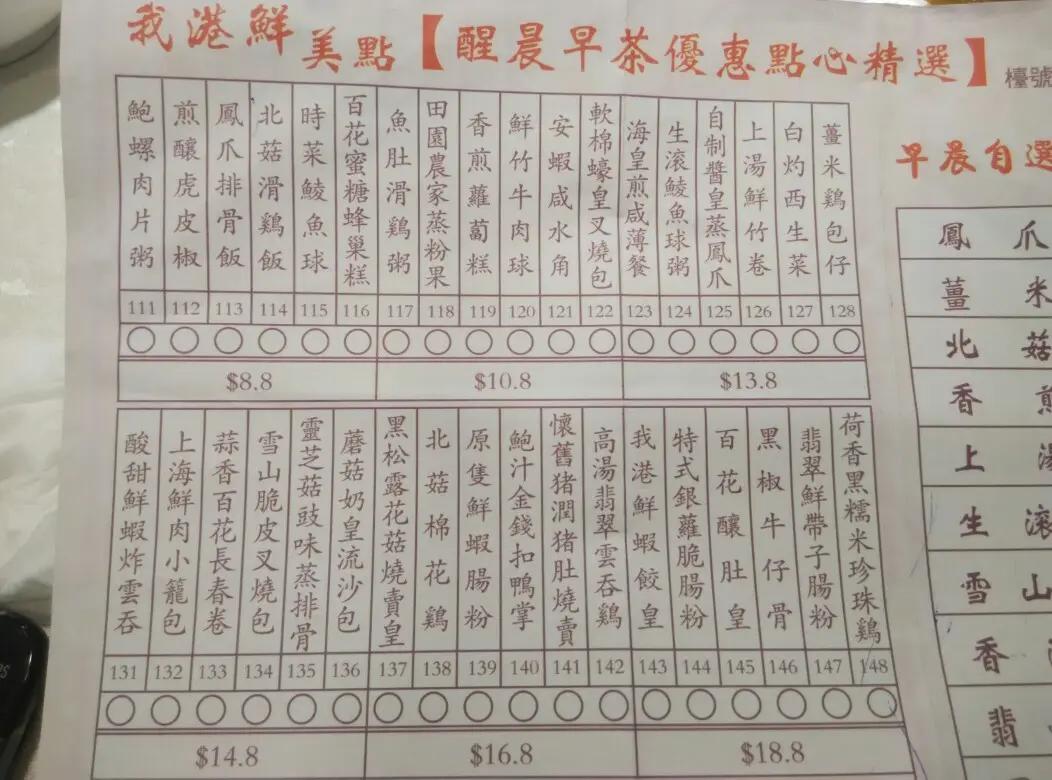 我港鮮美點【醒晨早茶優惠點心精選】
檯號
鮑螺肉片粥
煎釀虎皮椒
鳳爪排骨飯
北菇滑鷄飯
時菜鯪魚球
百花蜜糖蜂巢糕
魚肚滑鷄粥
田園農家蒸粉果
香煎蘿蔔糕
鮮竹牛肉球
安蝦咸水角
軟棉蠔皇叉燒包
海皇煎咸薄餐
生滚鯪魚球粥
自制醬皇蒸鳳爪
上湯鮮竹卷
白灼西生菜
薑米鷄包仔
111 112 113 114 115 116 117 118 119 120 121 122 123 124 125 126 127 128
$8.8 $10.8 $13.8
酸甜鮮蝦炸雲吞
上海鮮肉小籠包
蒜香百花長春卷
雪山脆皮叉燒包
靈芝菇豉味蒸排骨
蘑菇奶皇流沙包
黑松露花菇燒賣皇
北菇棉花鷄
原隻鮮蝦腸粉
鮑汁金錢扣鴨掌
懷舊猪潤猪肚燒賣
高湯翡翠雲吞鷄
我港鮮蝦餃皇
特式銀蘿脆腸粉
百花釀肚皇
黑椒牛仔骨
翡翠鮮帶子腸粉
荷香黑糯米珍珠鷄
131 132 133 134 135 136 137 138 139 140 141 142 143 144 145 146 147 148
$14.8 $16.8 $18.8
早晨自選
鳳爪
薑米
北菇
香煎
上湯
生滚
雪山
香
翡